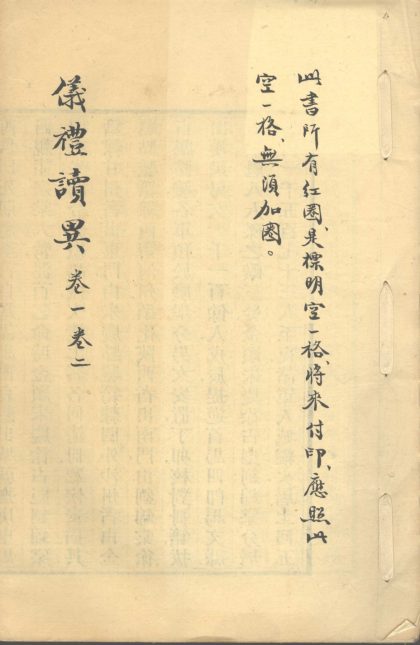 此書所有紅圈、是標明空一格、將來付印、應照此
空一格、無須加圈。
儀禮讀異 卷一卷二